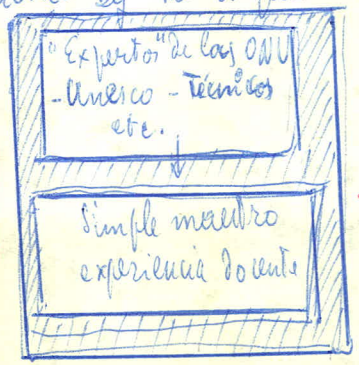 "Expertos" de las ONU
-Unesco - Técnicos
etc.
Simple maestro
experiencia docente